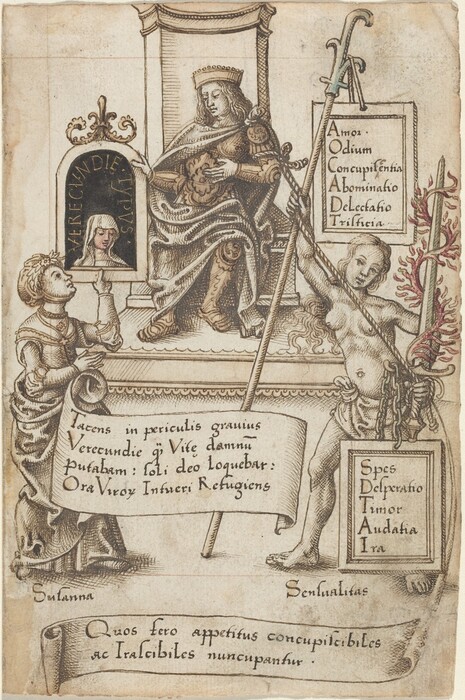 VERECUNDIE TYPVS
Amor.
Odium
Concupiscentia
Abominatio
Delectatio
Tristicia
Tacens in periculis grauius
Verecundie q̃ Vitę damnũ
Putabam: soli deo loquebar:
Ora Viroꝝ Intueri Refugiens
Spes
Desperatio
Timor
Audatia
Ira
Susanna
Sensualitas
Quos fero appetitus concupiscibiles
ac Irascibiles nuncupantur.